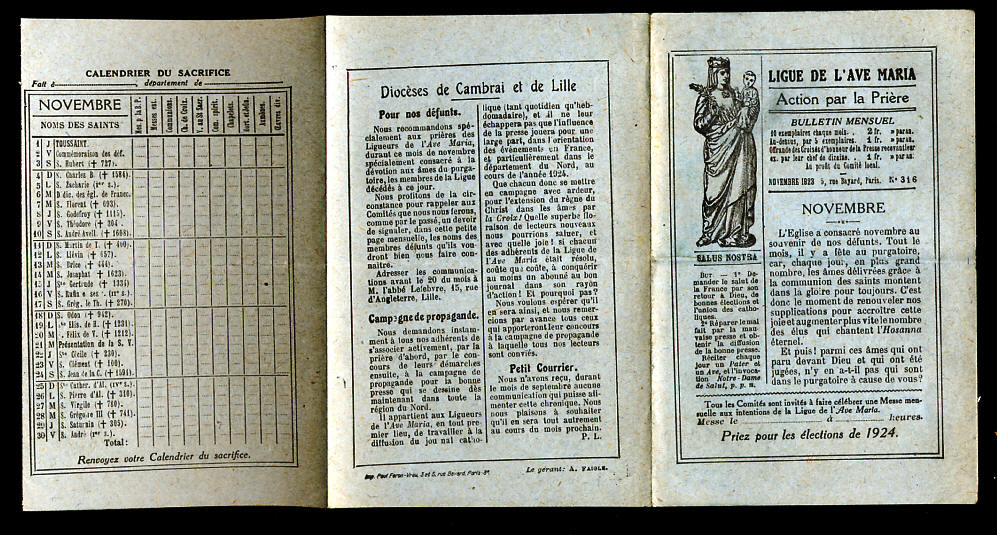 CALENDRIER DU SACRIFICE
Fait à , département de
NOVEMBRE
NOMS DES SAINTS
Messes ent.
Communions.
Ch. de Croix.
V. au St Sacr.
Com. spirit.
Chapelets.
Aumônes.
Œuvres div.
1 J TOUSSAINT.
2 V Commémoraison des déf.
3 S S. Hubert († 727).
4 D S. Charles B. († 1584).
5 L S. Zacharie (Ier s.).
6 M Déc. des égl. de France.
7 M S. Florent († 693).
8 J S. Godefroy († 1115).
9 V S. Théodore († 304).
10 S S. André Avell. († 1608).
11 D S. Martin de T. († 400).
12 L S. Liévin († 657).
13 M S. Brice († 444).
14 M S. Josaphat († 1623).
15 J Ste Gertrude († 1334)
16 V S. Rufin e. ses (IVe s.).
17 S S. Grég. le Th. († 270).
18 D S. Odon († 942).
19 L Ste Elis. de H. († 1231).
20 M S. Félix de V. († 1212).
21 M Présentation de la S. V.
22 J Ste Cécile († 230).
23 V S. Clément († 100).
24 S S. Jean de la C. († 1591).
25 D Ste Cather. d'Al. (IVe s.).
26 L S. Pierre d'Al. († 310).
27 M S. Virgile († 780).
28 M S. Grégoire III († 741).
29 J S. Saturnin († 303).
30 V S. André (Ier s.).
Total:
Renvoyez votre Calendrier du sacrifice.
Diocèses de Cambrai et de Lille
Pour nos défunts.
Nous recommandons spé-
cialement aux prières des
Ligueurs de l'Ave Maria,
durant ce mois de novembre
spécialement consacré à la
dévotion aux âmes du purga-
toire, les membres de la Ligue
décédés à ce jour.
Nous profitons de la cir-
constance pour rappeler aux
Comités que nous nous ferons,
comme par le passé, un devoir
de signaler, dans cette petite
page mensuelle, les noms des
membres défunts qu'ils vou-
dront bien nous faire con-
naître.
Adresser les communica-
tions avant le 20 du mois à
M. l'abbé Lefebvre, 45, rue
d'Angleterre, Lille.
Campagne de propagande.
Nous demandons instam-
ment à tous nos adhérents de
s'associer activement, par la
prière d'abord, par le con-
cours de leurs démarches
ensuite, à la campagne de
propagande pour la bonne
presse qui se dessine dès
maintenant dans toute la
région du Nord.
Il appartient aux Ligueurs
de l'Ave Maria, en tout pre-
mier lieu, de travailler à la
diffusion du journal catho-
lique (tant quotidien qu'heb-
domadaire), et il ne leur
échappera pas que l'influence
de la presse jouera pour une
large part, dans l'orientation
des événements en France,
et particulièrement dans le
département du Nord, au
cours de l'année 1924.
Que chacun donc se mette
en campagne avec ardeur,
pour l'extension du règne du
Christ dans les âmes par
la Croix! Quelle superbe flo-
raison de lecteurs nouveaux
nous pourrions saluer, et
avec quelle joie! si chacun
des adhérents de la Ligue de
l'Ave Maria était résolu,
coûte que coûte, à conquérir
au moins un abonné au bon
journal dans son rayon
d'action! Et pourquoi pas?
Nous voulons espérer qu'il
en sera ainsi, et nous remer-
cions par avance tous ceux
qui apporteront leur concours
à la campagne de propagande
à laquelle tous nos lecteurs
sont conviés.
Petit Courrier.
Nous n'avons reçu, durant
le mois de septembre aucune
communication qui puisse ali-
menter cette chronique. Nous
nous plaisons à souhaiter
qu'il en sera tout autrement
au cours du mois prochain.
P. L.
Imp. Paul Feron-Vrau, 3 et 5, rue Bayard, Paris-8e.
Le gérant: A. FAIGLE.
SALUS NOSTRA
BUT — 1° De-
mander le salut de
la France par son
retour à Dieu, de
bonnes élections et
l'union des catho-
liques.
2° Réparer le mal
fait par la mau-
vaise presse et ob-
tenir la diffusion
de la bonne presse.
Réciter chaque
jour un Pater et
un Ave, et l'invoca-
tion Notre-Dame
de Salut, p. p. n.
LIGUE DE L'AVE MARIA
Action par la Prière
BULLETIN MENSUEL
10 exemplaires chaque mois. . 2 fr. » par an.
Au-dessus, par 5 exemplaires. . 1 fr. » par an.
Offrande des Croisés d'honneur de la Presse recevant leur
ex. par leur chef de dizaine. . 1 fr. » par an.
Au profit du Comité local.
NOVEMBRE 1923 5, rue Bayard, Paris. N° 316
NOVEMBRE
L'Eglise a consacré novembre au
souvenir de nos défunts. Tout le
mois, il y a fête au purgatoire,
car, chaque jour, en plus grand
nombre, les âmes délivrées grâce à
la communion des saints montent
dans la gloire pour toujours. C'est
donc le moment de renouveler nos
supplications pour accroître cette
joie et augmenter plus vite le nombre
des élus qui chantent l'Hosanna
éternel.
Et puis! parmi ces âmes qui ont
paru devant Dieu et qui ont été
jugées, n'y en a-t-il pas qui sont
dans le purgatoire à cause de vous?
Tous les Comités sont invités à faire célébrer une Messe men-
suelle aux intentions de la Ligue de l'Ave Maria.
Messe le à heures.
Priez pour les élections de 1924.